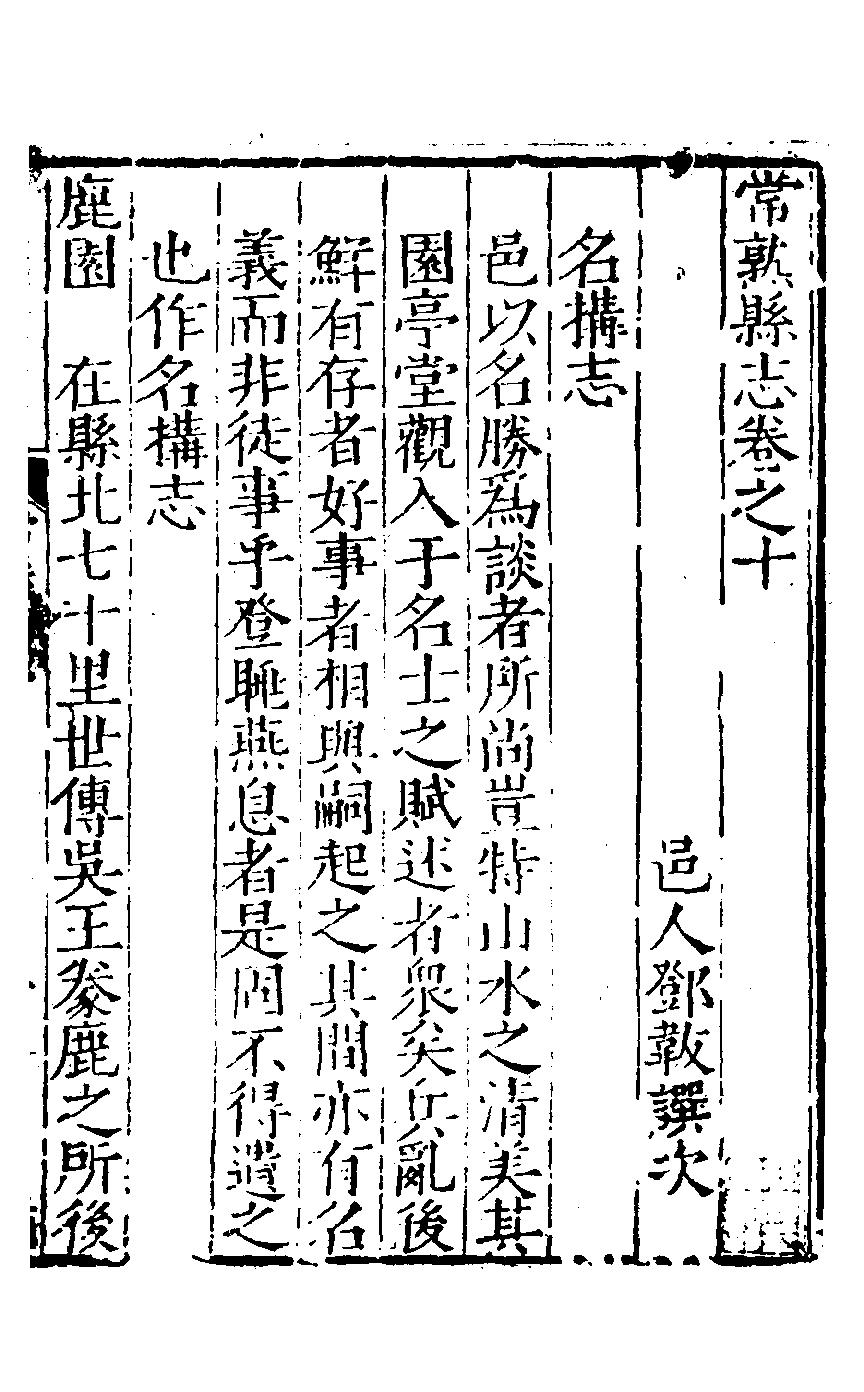 常熟縣志卷之十
邑人鄧韍譔次
名搆志
邑以名勝爲談者所尚豈特山水之清美其
園亭堂觀入于名士之賦述者衆矣兵亂後
鮮有存者好事者相與嗣起之其間亦有名
義而非徒事乎登眺燕息者是固不得遺之
也作名搆志
鹿園　在縣北七十里世傳吳王豢鹿之所後